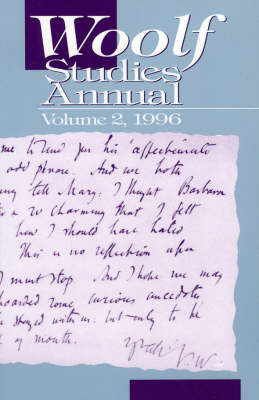 Woolf
Studies
Annual
Volume 2, 1996
me to send you his 'affectionate
odd phrase. And we both
tell Mary. I thought Barbara
so charming that I felt
how I should have hated
This is no reflection upon
I must stop. And I hope we may
hoarded some curious anecdotes
stayed with us: but only to be
of month.
V.W.